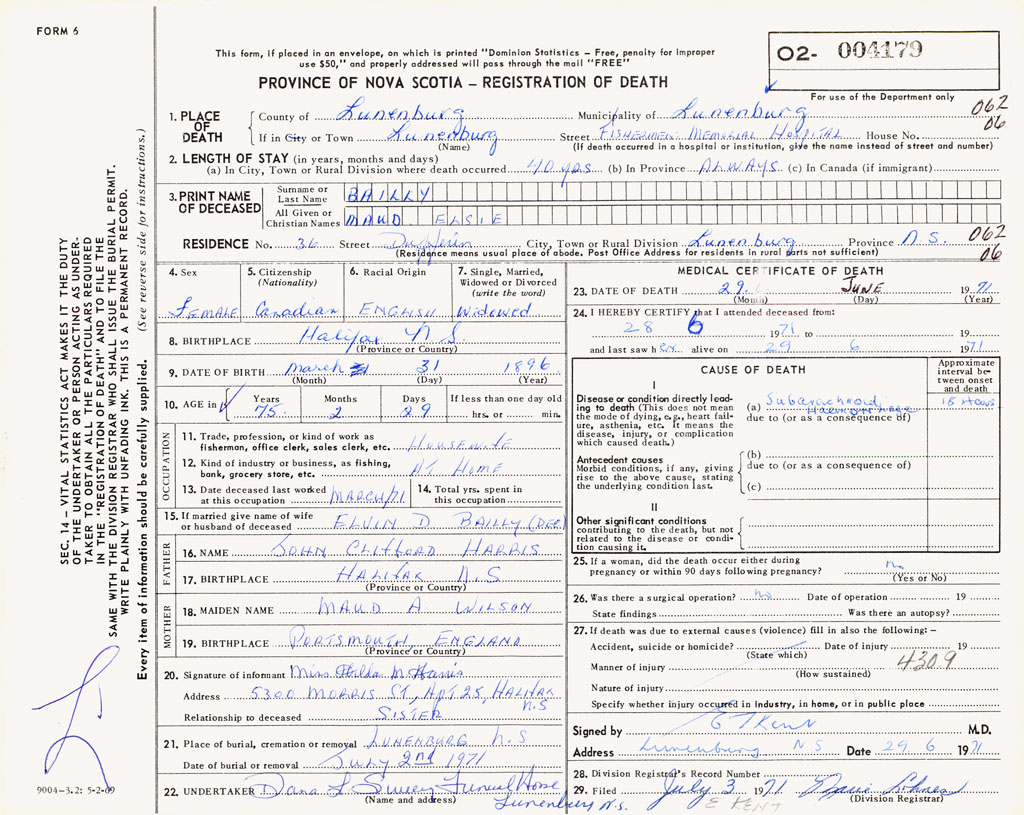 FORM 6
This form, if placed in an envelope, on which is printed "Dominion Statistics – Free, penalty for improper
use $50," and properly addressed will pass through the mail "FREE"
PROVINCE OF NOVA SCOTIA – REGISTRATION OF DEATH
O2- 004179
For use of the Department only
1. PLACE OF DEATH
County of Lunenburg Municipality of Lunenburg 062
If in City or Town Lunenburg Street FISHERMENS MEMORIAL HOSPITAL House No. 06
(Name) (If death occurred in a hospital or institution, give the name instead of street and number)
2. LENGTH OF STAY (in years, months and days)
(a) In City, Town or Rural Division where death occurred 40 yrs (b) In Province ALWAYS (c) In Canada (if immigrant)
3. PRINT NAME OF DECEASED
Surname or Last Name BAILLY
All Given or Christian Names MAUD ELSIE
RESIDENCE No. 36 Street Dufferin City, Town or Rural Division Lunenburg Province N.S. 062
(Residence means usual place of abode. Post Office Address for residents in rural parts not sufficient) 06
4. Sex
FEMALE
5. Citizenship (Nationality)
Canadian
6. Racial Origin
ENGLISH
7. Single, Married, Widowed or Divorced (write the word)
Widowed
8. BIRTHPLACE Halifax N S.
(Province or Country)
9. DATE OF BIRTH March 31 1896
(Month) (Day) (Year)
10. AGE in Years Months Days If less than one day old
75 2 29 hrs. or min.
OCCUPATION
11. Trade, profession, or kind of work as fisherman, office clerk, sales clerk, etc. HOUSEWIFE
12. Kind of industry or business, as fishing, bank, grocery store, etc. AT HOME
13. Date deceased last worked at this occupation MARCH/71
14. Total yrs. spent in this occupation
15. If married give name of wife or husband of deceased ELVIN D BAILLY (DEC)
FATHER
16. NAME JOHN CLIFFORD HARRIS
17. BIRTHPLACE HALIFAX N.S
(Province or Country)
MOTHER
18. MAIDEN NAME MAUD A WILSON
19. BIRTHPLACE PORTSMOUTH, ENGLAND
(Province or Country)
20. Signature of informant Miss Hilda M Harris
Address 5300 MORRIS ST, APT 25, HALIFAX
N.S
Relationship to deceased SISTER
21. Place of burial, cremation or removal LUNENBURG N.S
Date of burial or removal July 2nd 1971
22. UNDERTAKER Dana L Funeral Home
(Name and address) Lunenburg N.S.
MEDICAL CERTIFICATE OF DEATH
23. DATE OF DEATH 29 JUNE 1971
(Month) (Day) (Year)
24. I HEREBY CERTIFY that I attended deceased from:
28 6 1971 to 19
and last saw her alive on 29 6 1971
CAUSE OF DEATH
Approximate interval between onset and death
I
Disease or condition directly leading to death (This does not mean the mode of dying, e.g., heart failure, asthenia, etc. It means the disease, injury, or complication which caused death.)
(a) Subarachnoid Haemorrhage 18 Hours
due to (or as a consequence of)
Antecedent causes
Morbid conditions, if any, giving rise to the above cause, stating the underlying condition last.
(b)
due to (or as a consequence of)
(c)
II
Other significant conditions
contributing to the death, but not related to the disease or condition causing it.
25. If a woman, did the death occur either during pregnancy or within 90 days following pregnancy? No
(Yes or No)
26. Was there a surgical operation? No Date of operation 19
State findings Was there an autopsy?
27. If death was due to external causes (violence) fill in also the following: –
Accident, suicide or homicide? Date of injury 19
(State which) 4309
Manner of injury
(How sustained)
Nature of injury
Specify whether injury occurred in industry, in home, or in public place
Signed by E T Kent M.D.
Address Lunenburg N S Date 29 6 1971
28. Division Registrar's Record Number
29. Filed July 3 1971
E. KENT (Division Registrar)
SEC. 14 – VITAL STATISTICS ACT MAKES IT THE DUTY
OF THE UNDERTAKER OR PERSON ACTING AS UNDER-
TAKER TO OBTAIN ALL THE PARTICULARS REQUIRED
IN THE "REGISTRATION OF DEATH" AND TO FILE THE
SAME WITH THE DIVISION REGISTRAR WHO SHALL ISSUE THE BURIAL PERMIT.
WRITE PLAINLY WITH UNFADING INK. THIS IS A PERMANENT RECORD.
Every item of information should be carefully supplied. (See reverse side for instructions.)
9004-3.2: 5-2-69